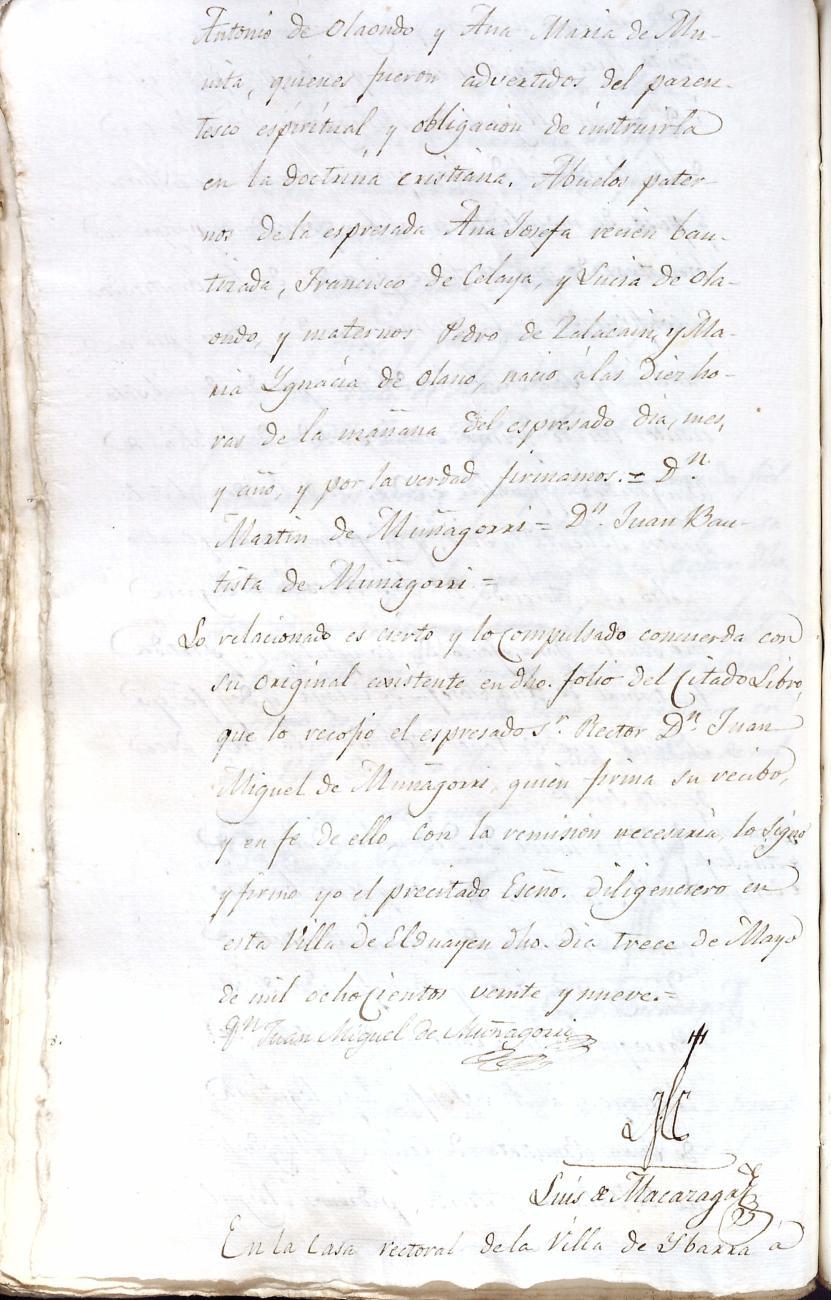 Antonio de Olaondo y Ana Maria de Mu-
nita, quienes fueron advertidos del paren-
tesco espiritual y obligacion de instruirla
en la doctrina cristiana. Abuelos pater-
nos de la espresada Ana Josefa recien bau-
tizada, Francisco de Celaya, y Lucia de Ola-
ondo, y maternos Pedro de Zalacain, y Ma-
ria Ygnacia de Olano, nació á las diez ho-
ras de la mañana del espresado dia, mes,
y año, y por la verdad firmamos. = Dn.
Martin de Muñagorri = Dn. Juan Bau-
tista de Muñagorri =
Lo relacionado es cierto y lo compulsado concuerda con
su original existente en dho. folio del Citado Libro,
que lo recojio el espresado Sr. Rector Dn. Juan
Miguel de Muñagorri, quien firma su recibo,
y en fé de ello, con la remision necesaria, lo signo
y firmo yo el precitado Esno. diligenciero en
esta Villa de Elduayen dho. dia trece de Mayo
de mil ochocientos veinte y nueve. =
Juan Miguel de Muñagorri
Luis de Macazaga
En la Casa rectoral de la Villa de Ybarra á